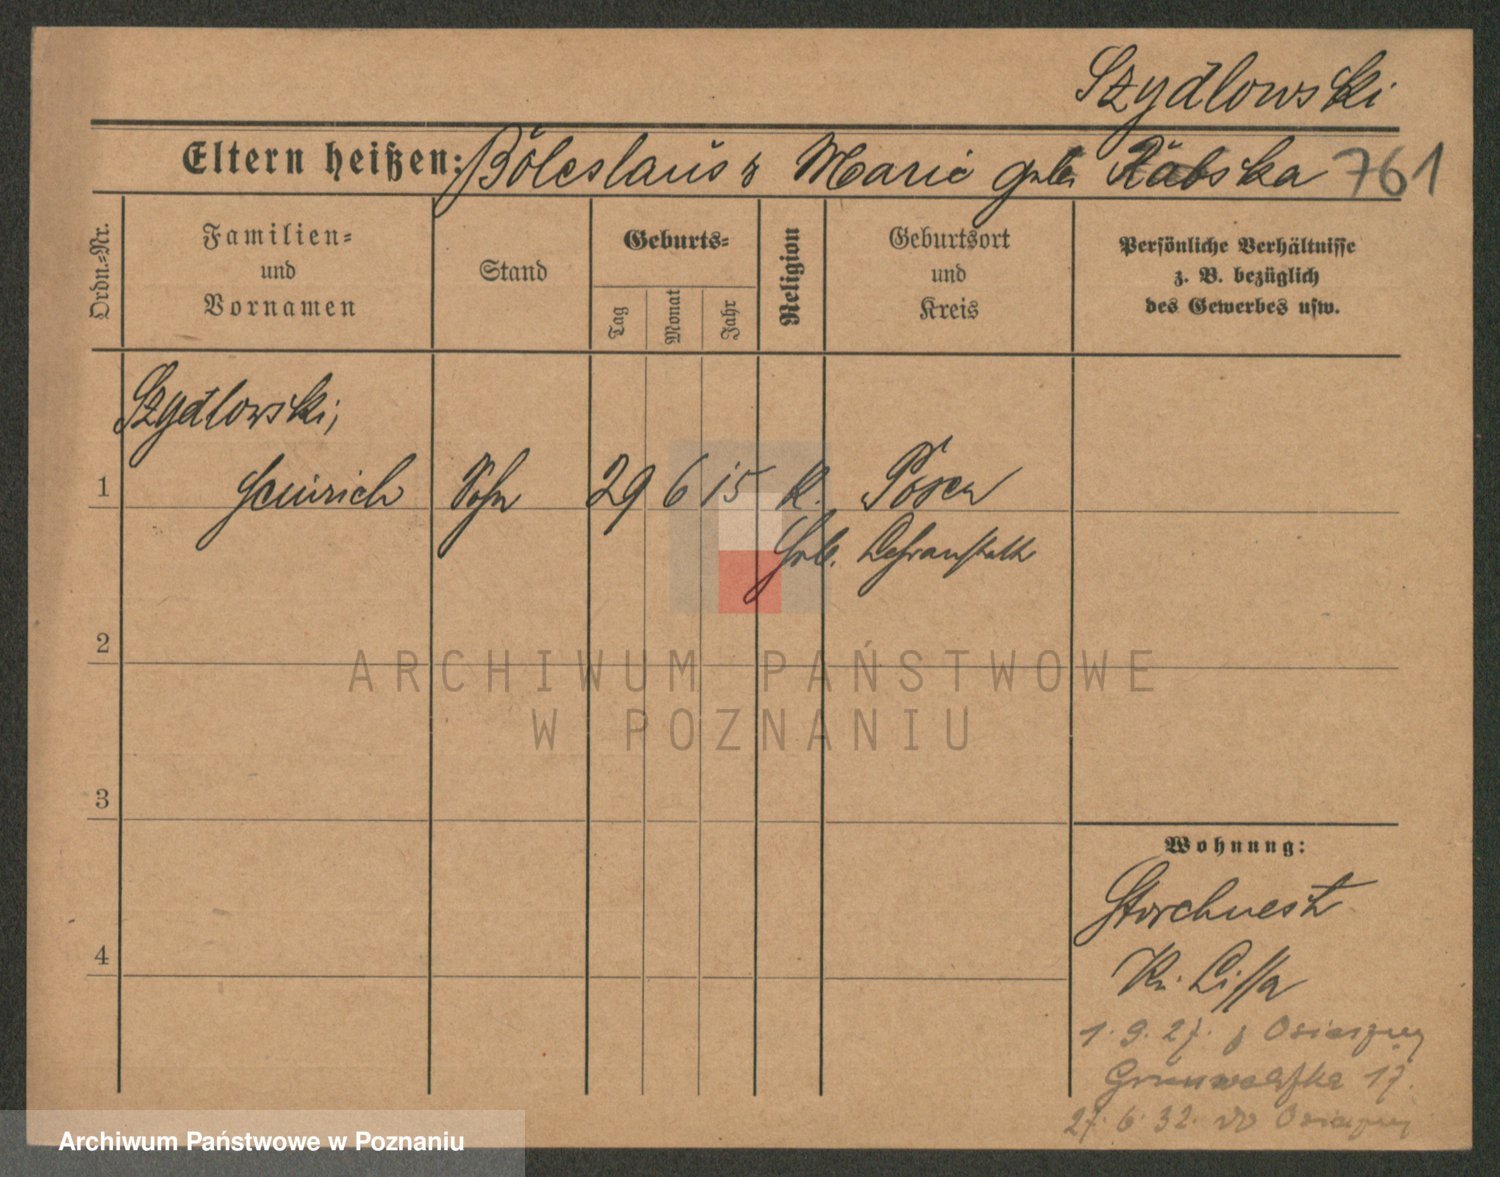 Szydlowski
Eltern heißen: Boleslaus u Marie geb. Rabska 761
Ordn.=Nr.
Familien=
und
Vornamen
Stand
Geburts=
Tag
Monat
Jahr
Religion
Geburtsort
und
Kreis
Persönliche Verhältnisse
z. B. bezüglich
des Gewerbes usw.
Szydlowski,
1 Heinrich Sohn 29 6 15 K. Posen
Geb. Lehranstalt
2
3
4
Wohnung:
Storchnest
Kr. Lissa
1. 9. 27. z Osieczny
Grunwaldzka 17.
27. 6. 32. do Osieczny
ARCHIWUM PAŃSTWOWE
W POZNANIU
Archiwum Państwowe w Poznaniu